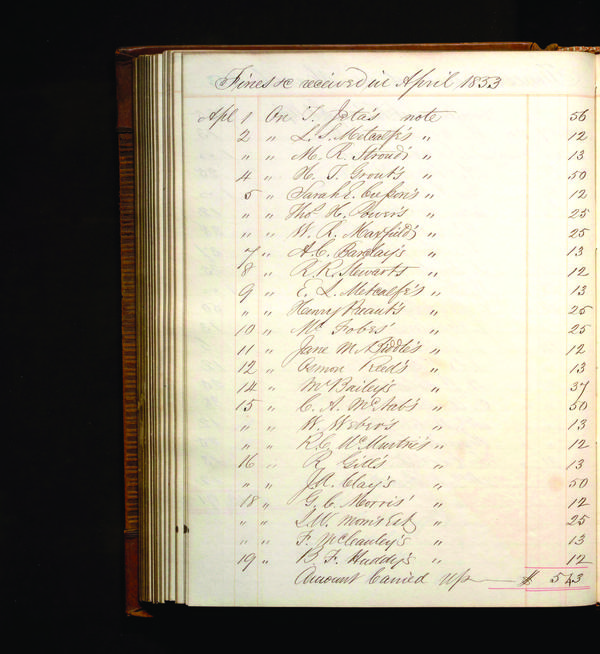 Fines &c received in April 1853
Apl 1 On T. Jeta's note 56
2 " L. S. Metcalfe's " 12
" " M. R. Stroud's " 13
4 " H. T. Grout's " 50
5 " Sarah E. Cresson's " 12
" " Thos H. Power's " 25
" " W. R. Maxfield's " 25
7 " A. C. Barclay's " 13
8 " R. R. Stewart's " 12
9 " E. L. Metcalfe's " 13
" " Henry " 25
10 " Mc Fobes' " 25
11 " Jane M N Biddle's " 12
12 " Osmon Reed's " 13
14 " McBailey's " 37
15 " C. A. McNab's " 50
" " W. Weber's " 13
" " R. C. McMurtrie's " 12
16 " R. Gill's " 13
" " J. A. Clay's " 50
18 " G. C. Morris' " 12
" " S. W. " 25
" " F. McCrauley's " 13
19 " B. F. Huddy's " 12
Amount Carried Up $ 543